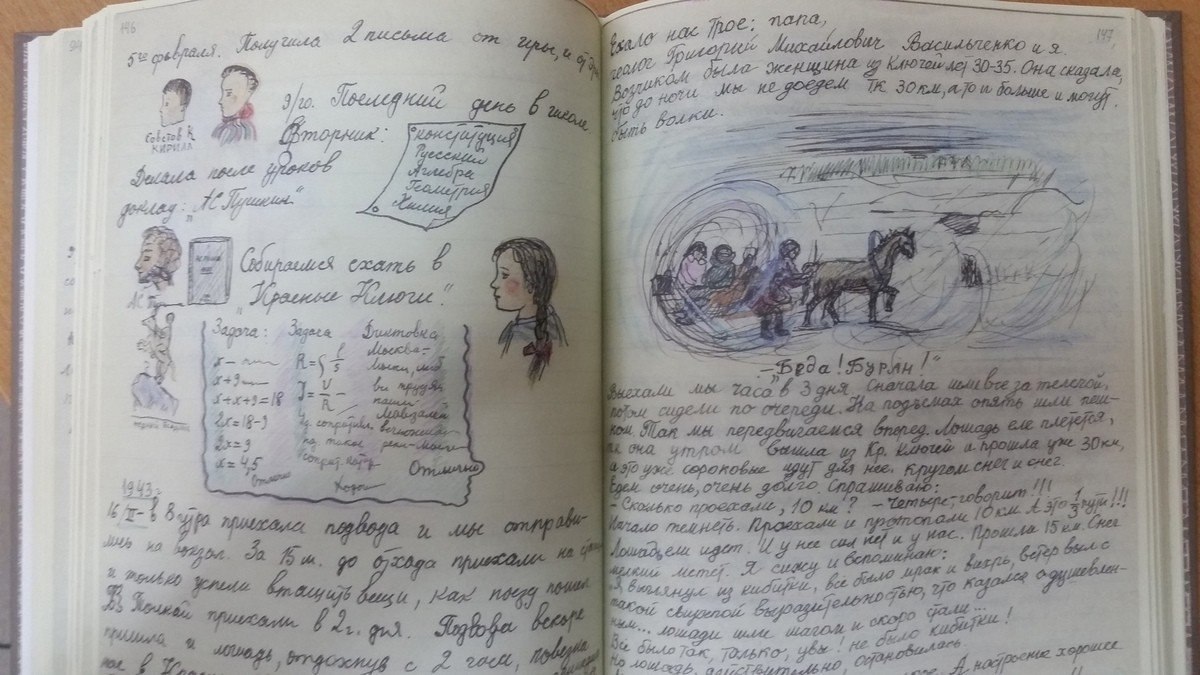 146
5го февраля. Получила 2 письма от
Советов К
КИРИЛЛ
9/го. Последний день в школе.
Вторник:
Конституция
Русский
Алгебра
Геометрия
Химия
Делала после уроков
доклад: "АС Пушкин"
Собираемся ехать в
"Красные Ключи".
Задача:
x+9
x+x+9=18
2x=18-9
2x=9
x=4,5
Отлично
Задача
Хорошо
Диктовка
Москва-
Отлично
1943г
16/II- в 8 утра приехала подвода и мы отправи-
лись на вокзал. За 15 м. до отхода приехали на
и только успели втащить вещи, как поезд пошел
В Толкай приехали в 2 г. дня. Подвода вскоре
пришла и лошадь, отдохнув с 2 часа, повезла
нас в
147
Ехало нас трое: папа,
геолог Григорий Михайлович Васильченко и я.
Возчиком была женщина из Ключей лет 30-35. Она сказала,
что до ночи мы не доедем тк 30 км, а то и больше и могут
быть волки.
-"Беда! Буран!"
Выехали мы часа в 3 дня. Сначала шли все за телегой,
потом сидели по очереди. На подъемах опять шли пеш-
ком. Так мы передвигаемся вперед. Лошадь еле плетется,
тк она утром вышла из Кр. Ключей и прошла уже 30 км,
и это уже сороковые идут для нее. Кругом снег и снег.
Едем очень, очень долго. Спрашиваю:
- Сколько проехали, 10 км? - Четыре,- говорит!!!
Начало темнеть. Проехали и протопали 10 км А это 1/3 пути!!!
Лошадь ем идет. И у нее сил нет и у нас. Прошли 15 км. Снег
мелкий метет. Я сижу и вспоминаю:
"Я выглянул из кибитки, все было мрак и вихрь, ветер выл с
такой свирепой выразительностью, что казался одушевлен-
ным... лошади шли шагом и скоро стали...
Все было так, только, увы! не было кибитки!
Но лошадь, действительно, остановилась.
А настроение хорошее